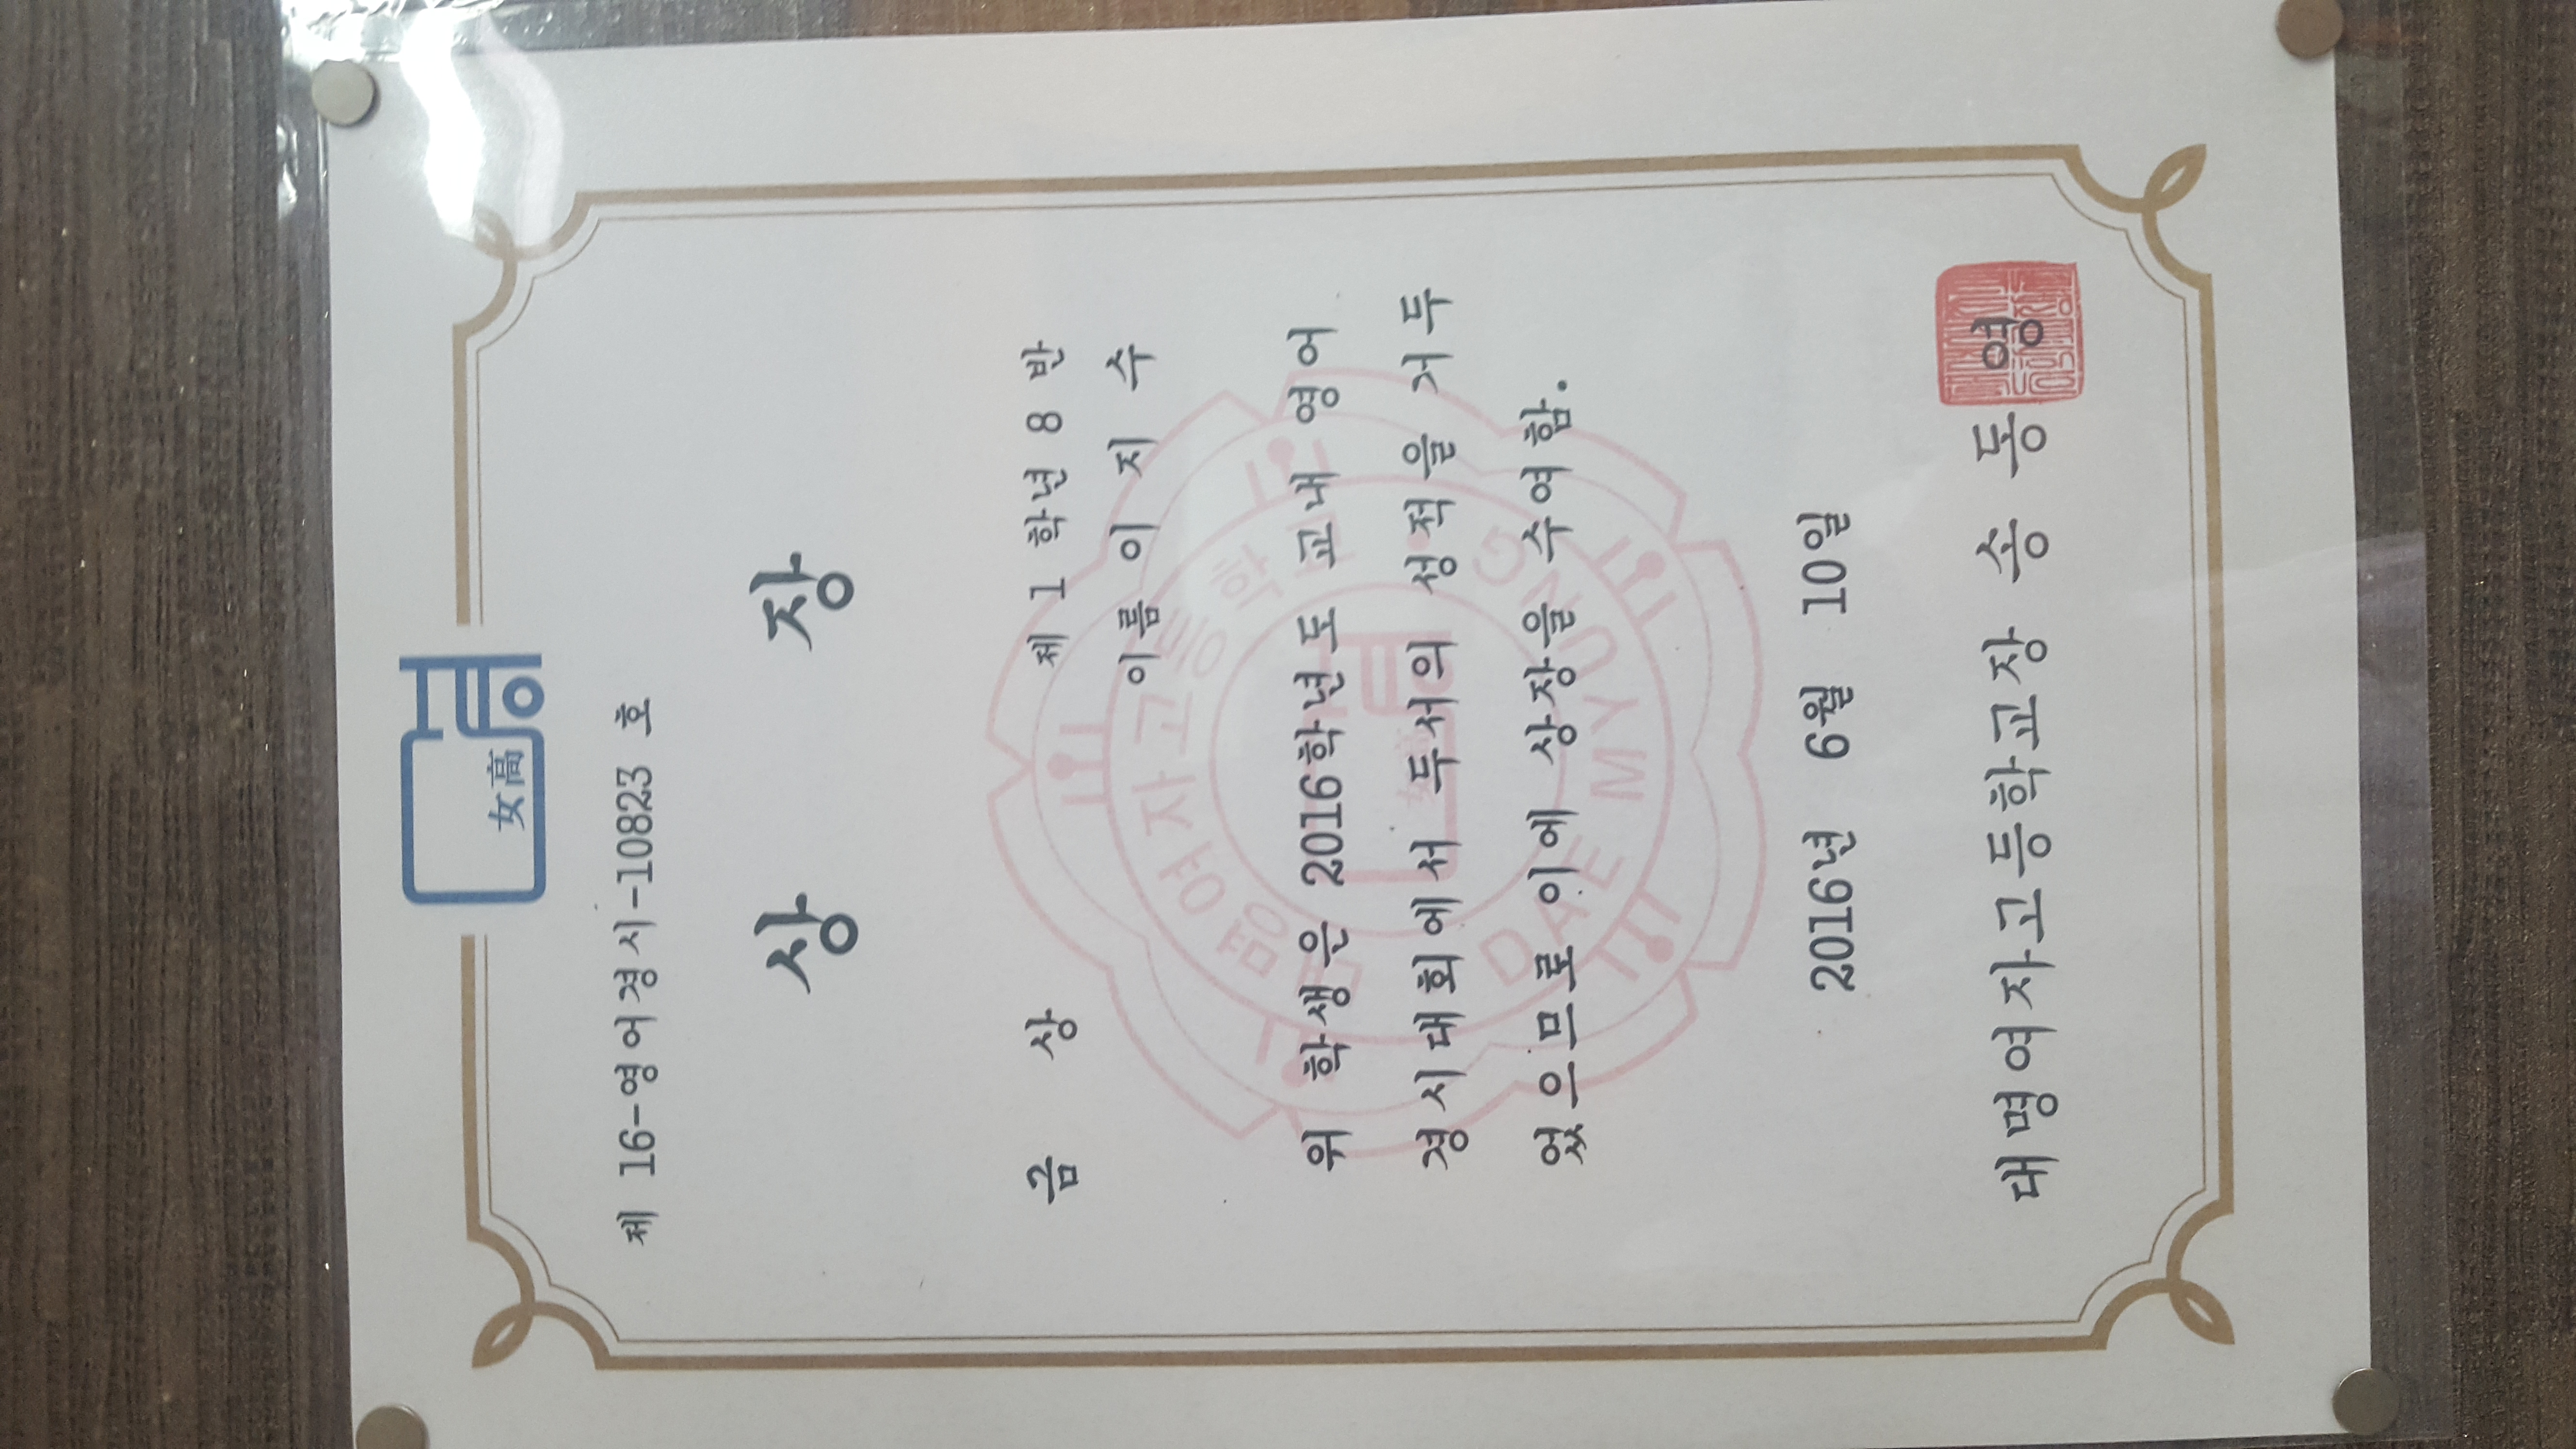 女高
제 16-영어경시-10823 호
상 장
금 상 제 1 학년 8 반
이름 이 지 수
위 학생은 2016학년도 교내 영어
경시대회에서 두서의 성적을 거두
었으므로 이에 상장을 수여함.
2016년 6월 10일
대명여자고등학교장 송 동 영
대명여자고등학교
DAE MYUNG